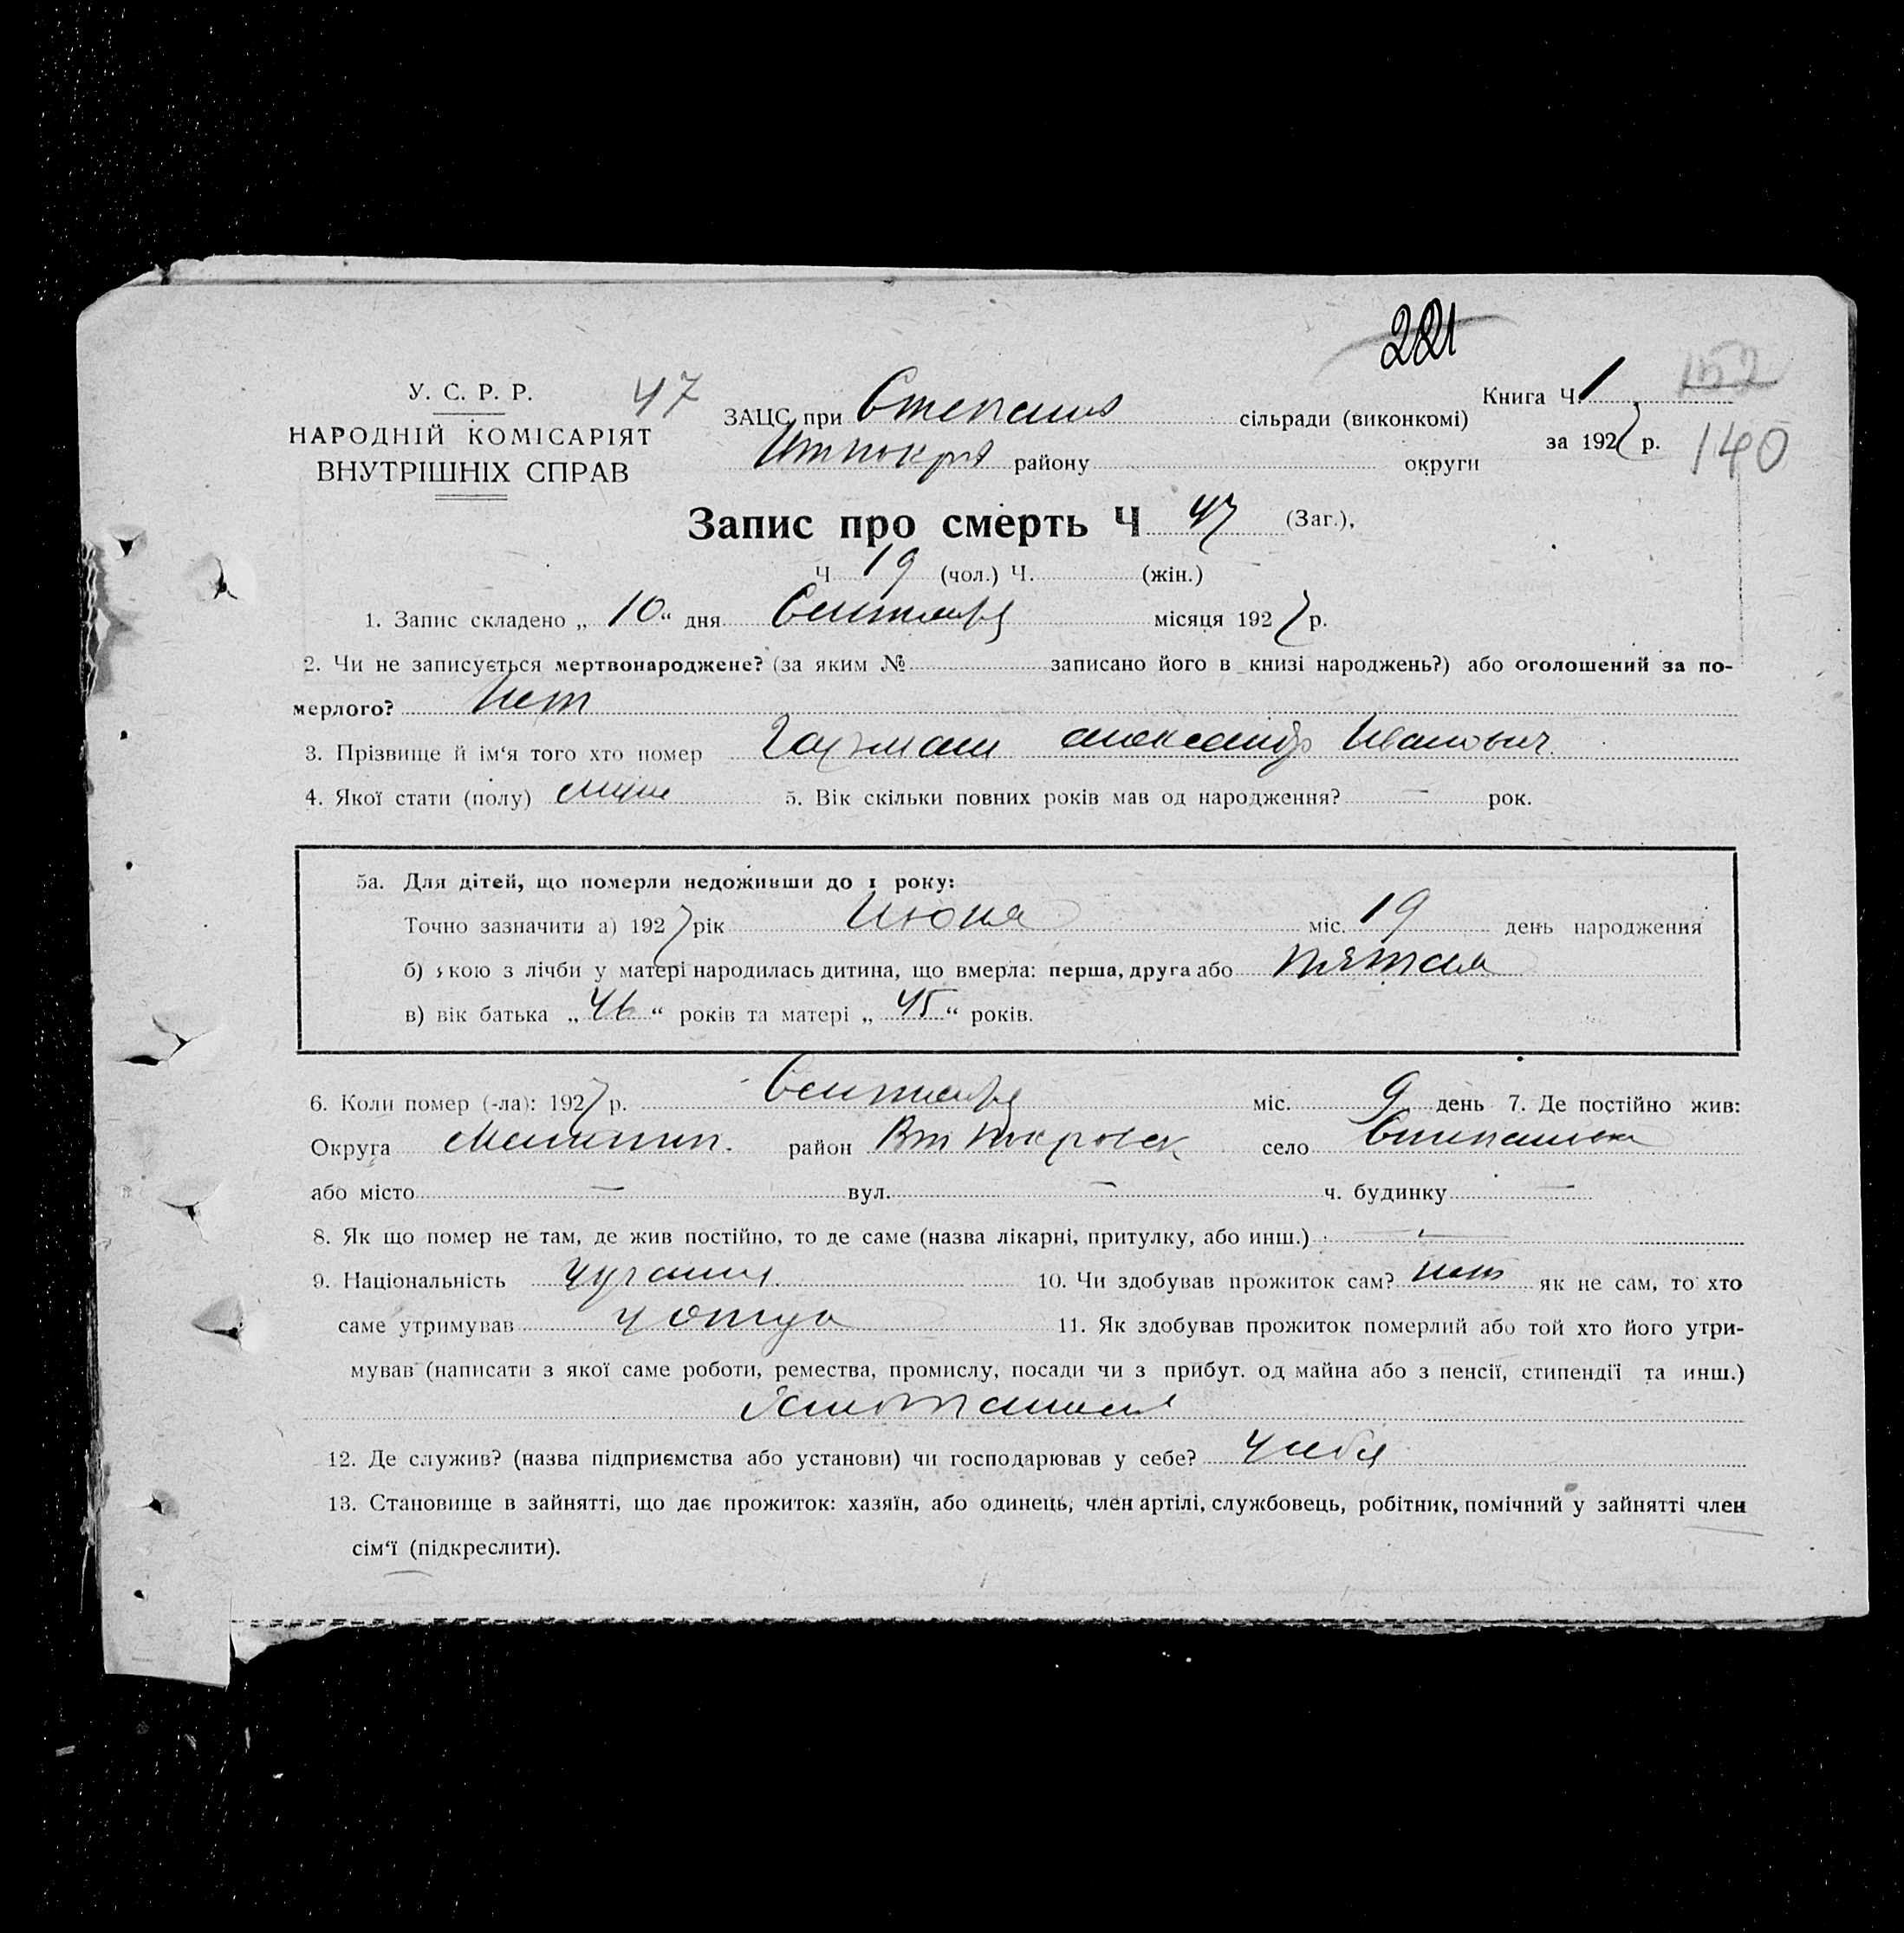 221
У. С. Р. Р. 47 ЗАЦС при Степан сільради (виконкомі) Книга Ч. 1 152
НАРОДНІЙ КОМІСАРІЯТ району округи за 1927 р. 140
ВНУТРІШНІХ СПРАВ
Запис про смерть Ч 47 (Заг.),
Ч 19 (чол.) Ч. (жін.)
1. Запис складено „ 10 “ дня Сентября місяця 1927 р.
2. Чи не записується мертвонароджене? (за яким № записано його в книзі народжень?) або оголошений за по-
мерлого? Нет
3. Прізвище й ім‘я того хто помер Александр Иванович
4. Якої стати (полу) 5. Вік скільки повних років мав од народження? — рок.
5а. Для дітей, що померли недоживши до 1 року:
Точно зазначити а) 1927 рік Июня міс. 19 день народження
б) якою з лічби у матері народилась дитина, що вмерла: перша, друга або пятая
в) вік батька „ 46 “ років та матері „ 45 “ років.
6. Коли помер (-ла): 1927 р. Сентября міс. 9 день 7. Де постійно жив:
Округа район село Степановка
або місто — вул. — ч. будинку —
8. Як що помер не там, де жив постійно, то де саме (назва лікарні, притулку, або инш.) —
9. Національність 10. Чи здобував прожиток сам? нет як не сам, то хто
саме утримував у отца 11. Як здобував прожиток померлий або той хто його утри-
мував (написати з якої саме роботи, ремества, промислу, посади чи з прибут. од майна або з пенсії, стипендії та инш.)
12. Де служив? (назва підприємства або установи) чи господарював у себе? у себя
13. Становище в зайнятті, що дає прожиток: хазяїн, або одинець, член артілі, службовець, робітник, помічний у зайнятті член
сім‘ї (підкреслити).